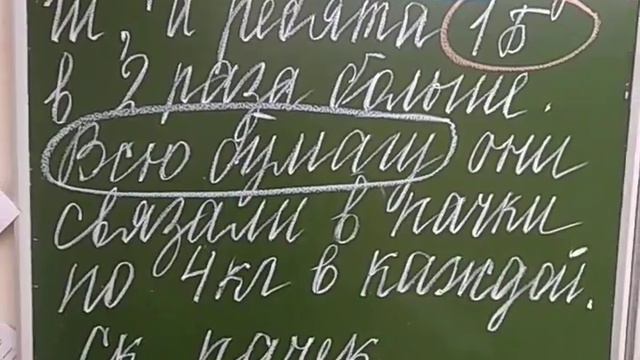 ш, и ребята 1Б
в 2 раза больше.
Всю бумагу они
связали в пачки
по 4кг в каждой.
ск пачек